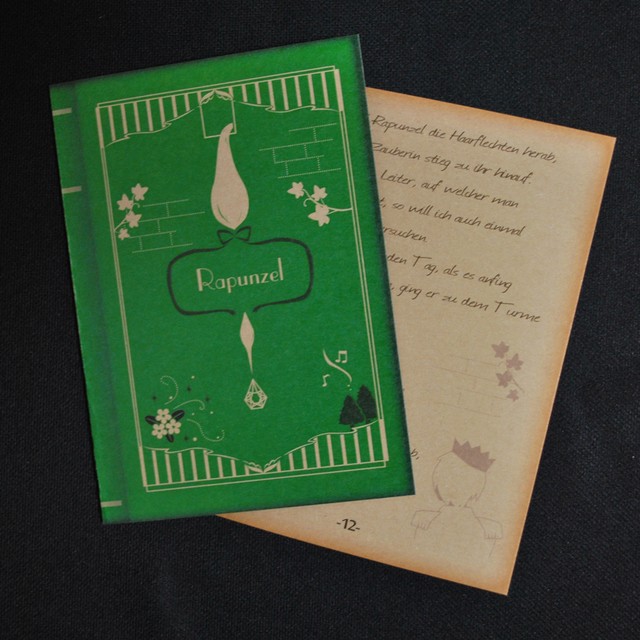 Rapunzel
Rapunzel die Haarflechten herab,
Zauberin stieg zu ihr hinauf.
Leiter, auf welcher man
t, so will ich auch einmal
ersuchen
den Tag, als es anfing
, ging er zu dem Turme
b,
-12-